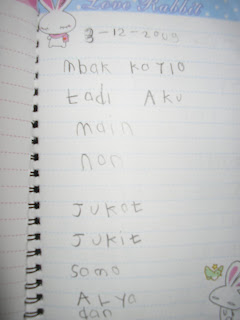 Love Rabbit
3-12-2009
mbak ka710
tadi Aku
main
non
Jukot
Jukit
samo
ALya
dan